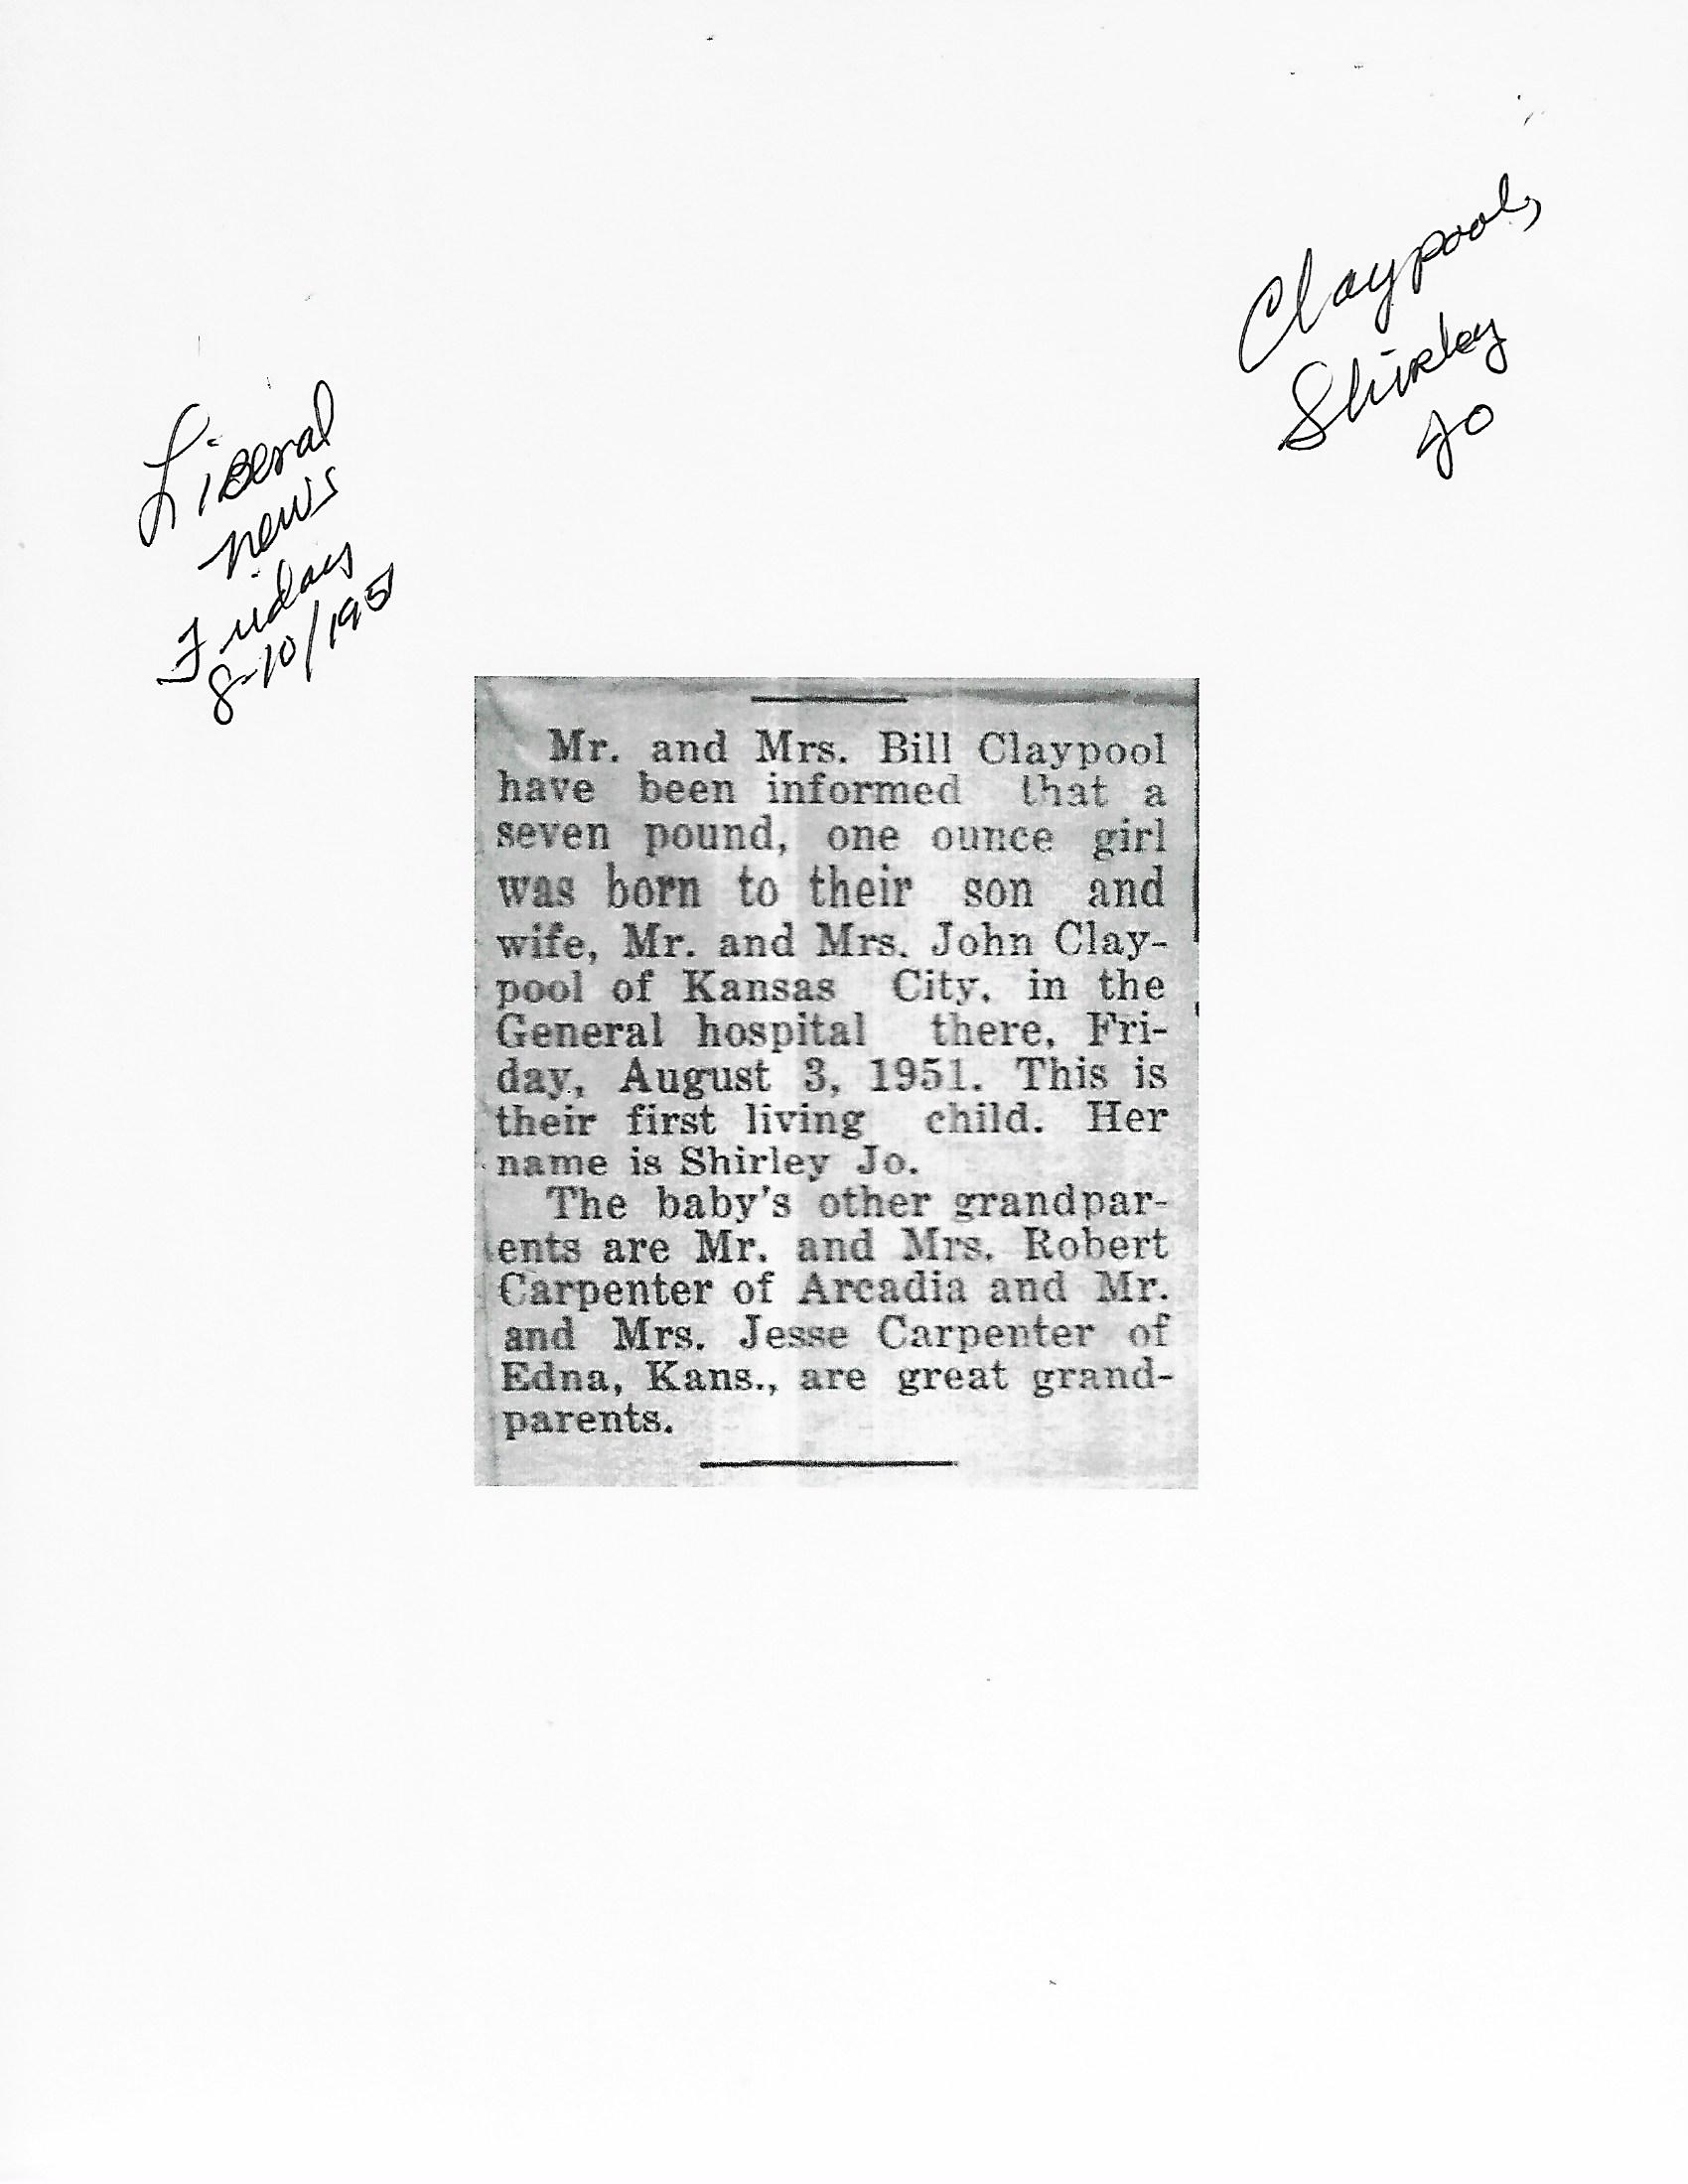 Claypool,
Shirley
Jo
Liberal
News
Friday
8-10/1951
Mr. and Mrs. Bill Claypool
have been informed that a
seven pound, one ounce girl
was born to their son and
wife, Mr. and Mrs. John Clay-
pool of Kansas City, in the
General hospital there, Fri-
day, August 3, 1951. This is
their first living child. Her
name is Shirley Jo.
The baby's other grandpar-
ents are Mr. and Mrs. Robert
Carpenter of Arcadia and Mr.
and Mrs. Jesse Carpenter of
Edna, Kans., are great grand-
parents.